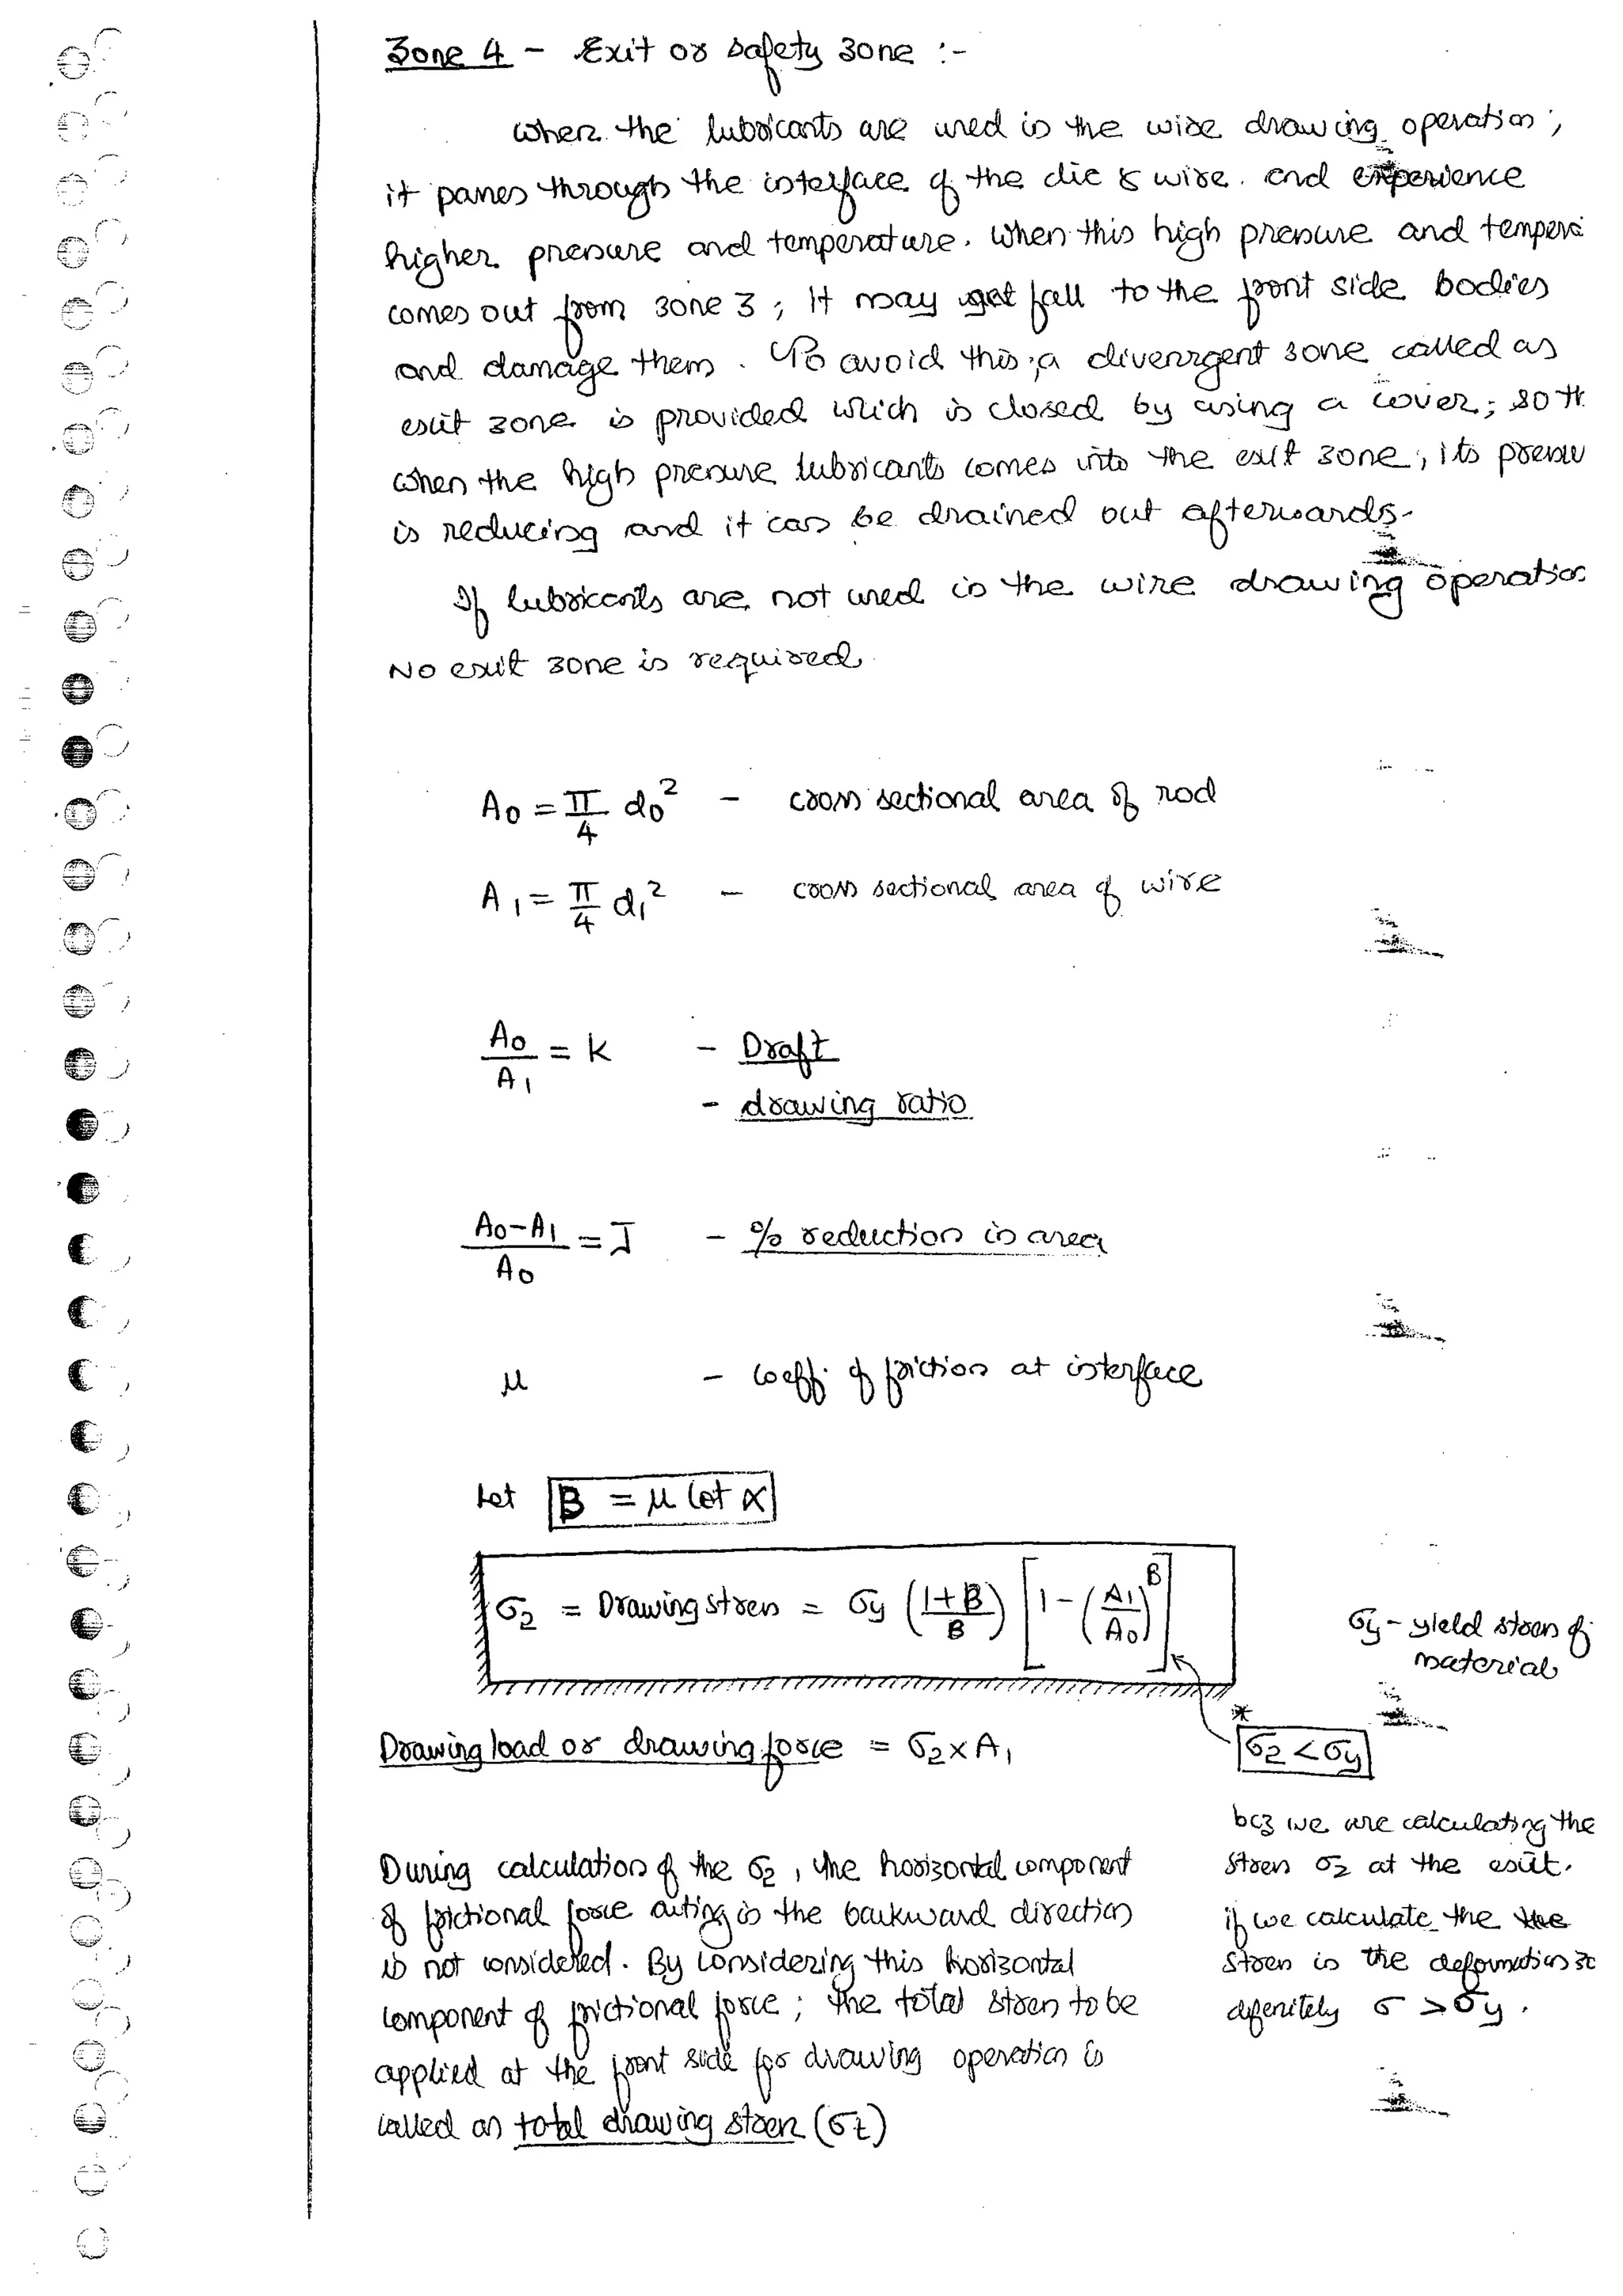 Zone 4 - Exit or safety zone :-
When the lubricants are used in the wire drawing operation ;
it passes through the interface of the die & wire. and experience
higher pressure and temperature. When this high pressure and tempera
comes out from zone 3 ; It may get fall to the front side bodies
and damage them. To avoid this ; a divergent zone called as
exit zone is provided which is closed by using a cover ; so th
when the high pressure lubricants comes into the exit zone ; its pressu
is reducing and it can be drained out afterwards.
If lubricants are not used in the wire drawing operation
No exit zone is required.
A₀ = π/4 d₀² - cross sectional area of rod
A₁ = π/4 d₁² - cross sectional area of wire
A₀/A₁ = K - Draft
- drawing ratio
(A₀-A₁)/A₀ = J - % reduction in area
μ - coeff. of friction at interface
Let B = μ Cot α
σ₂ = Drawing stress = σy ((1+B)/B) [1-(A₁/A₀)^B]
σy - yield stress of
material
Drawing load or drawing force = σ₂ x A₁
* σ₂ < σy
bcz we are calculating the
stress σ₂ at the exit.
if we calculate the the
stress in the deformation zo
definitely σ > σy .
During calculation of the σ₂ , the horizontal component
of frictional force acting in the backward direction
is not considered. By considering this horizontal
component of frictional force ; the total stress to be
applied at the front side for drawing operation is
called as total drawing stress (σt)